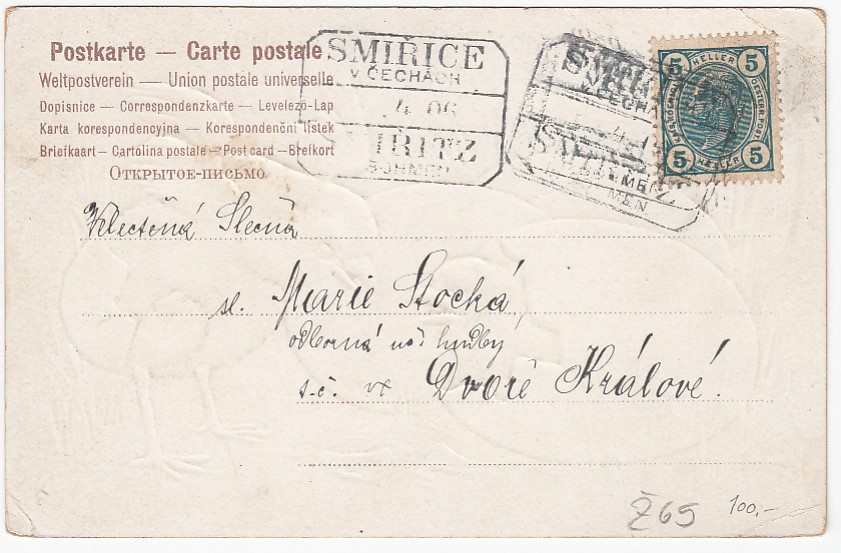 Postkarte — Carte postale
Weltpostverein — Union postale universelle
Dopisnice — Correspondenzkarte — Levelező-Lap
Karta korespondencyjna — Korespondenční lístek
Briefkaart — Cartolina postale — Post card — Brefkort
ОТКРЫТОЕ-ПИСЬМО
SMIŘICE
V ČECHÁCH
4 06
BÖHMEN
5 HELLER 5
5 HELLER 5
Velectěná Slečna
sl. Marie Stocká,
odborná hudby
t.č. ve Dvoře Králové.
Ž65
100,-